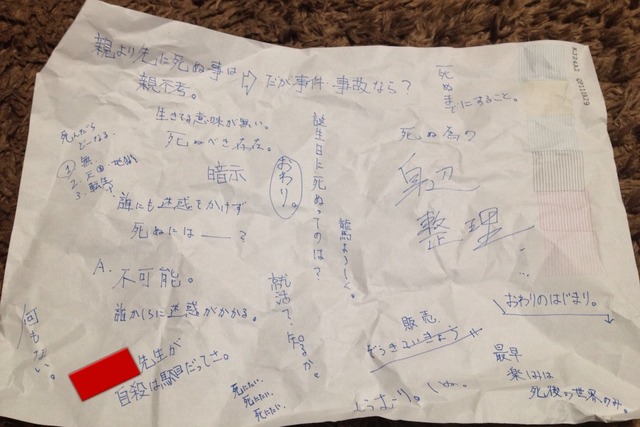 親より先に死ぬ事は
親不孝。
⇨ だが事件・事故なら?
生きる意味が無い。
死ぬべき存在。
死んだら
どーなる。
① 無
2. 天国・地獄
3. 転生
暗示
おわり。
誰にも迷惑をかけず
死ぬには――?
A. 不可能。
誰かしらに迷惑がかかる。
何もない。
先生が
自殺は駄目だってさ。
誕生日に死ぬってのは?
龍馬よろしく。
就活?知るか。
死にたい。
死にたい。
死にたい。
死ぬまでにすること。
死ぬ為の
身辺
整理
おわりのはじまり。
販売
最早
楽しみは
死後の世界のみ。